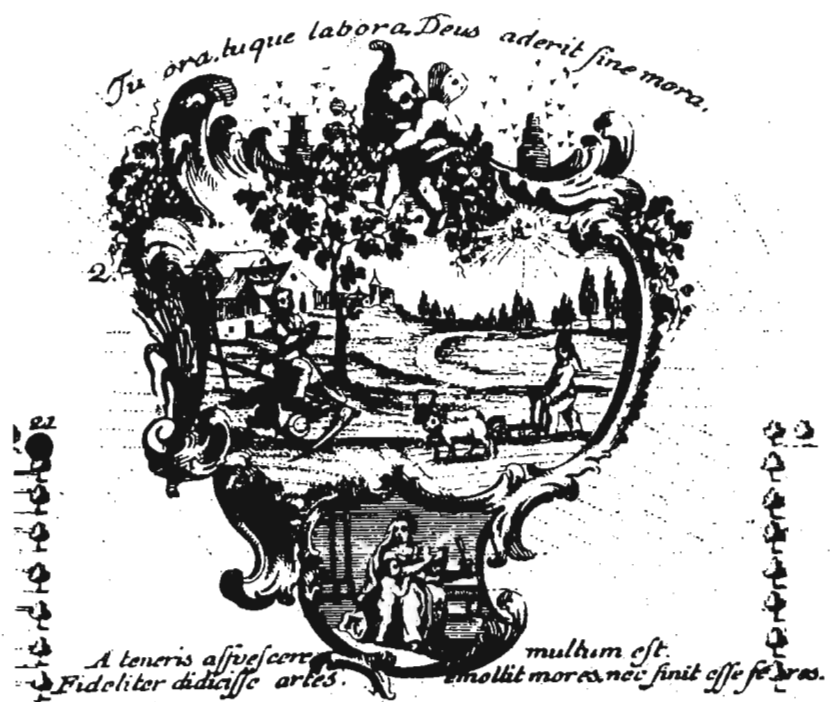 Tu ora, tuque labora, Deus aderit ſine mora.
2.
21
A teneris aſſueſcere multum eſt.
Fideliter didiciſſe artes. emollit mores, nec ſinit eſſe feros.